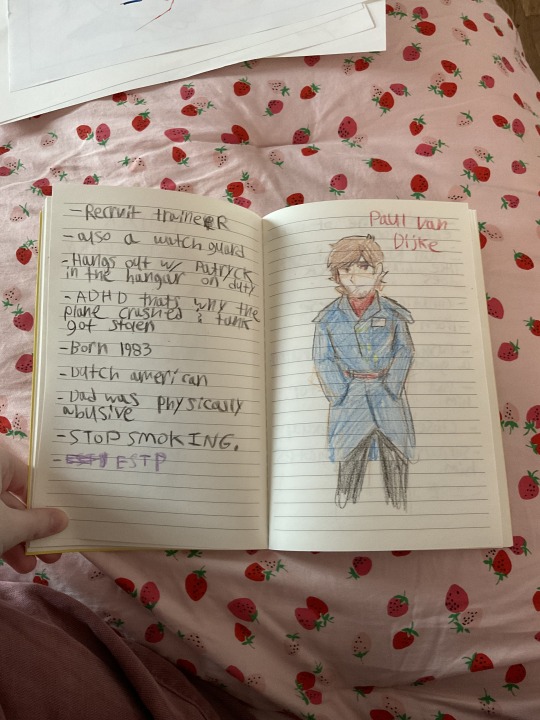 - Recruit traineR
- also a watch guard
- Hangs out w/ Patryck
in the hangar on duty
- ADHD thats why the
plane crashed & tank
got stolen
- Born 1983
- Dutch american
- Dad was physically
abusive
- STOP SMOKING.
- ESTP
Paul van
Dijke